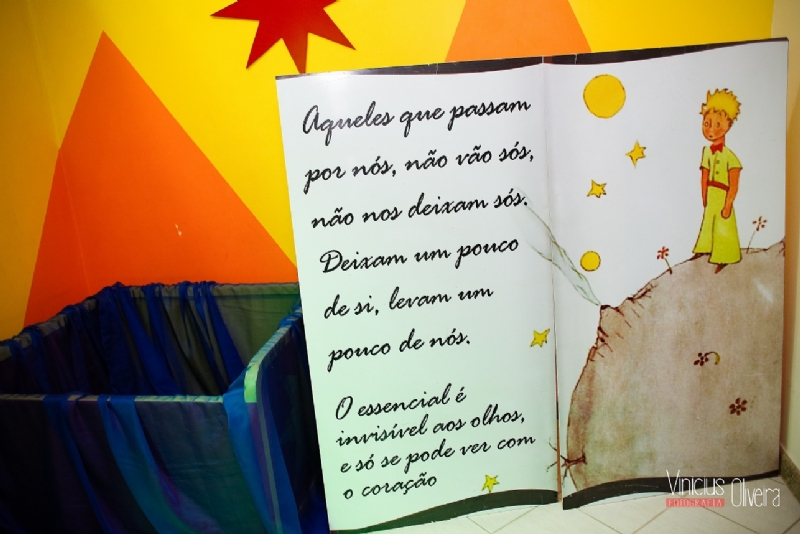 Aqueles que passam
por nós, não vão sós,
não nos deixam sós.
Deixam um pouco
de si, levam um
pouco de nós.
O essencial é
invisível aos olhos,
e só se pode ver com
o coração
Vinicius Oliveira
FOTOGRAFIA